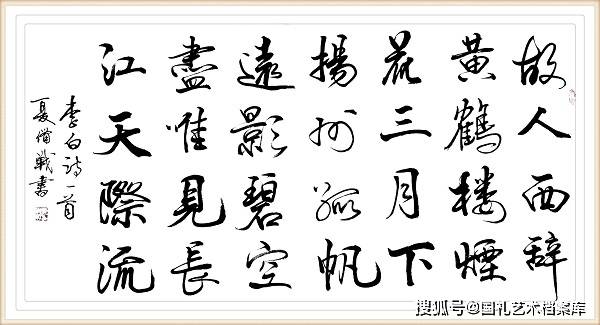 故人西辞
黄鶴楼煙
花三月下
揚州孤帆
遠影碧空
盡唯見長
江天際流
李白詩一首
夏備戰書
搜狐号@国礼艺术档案库